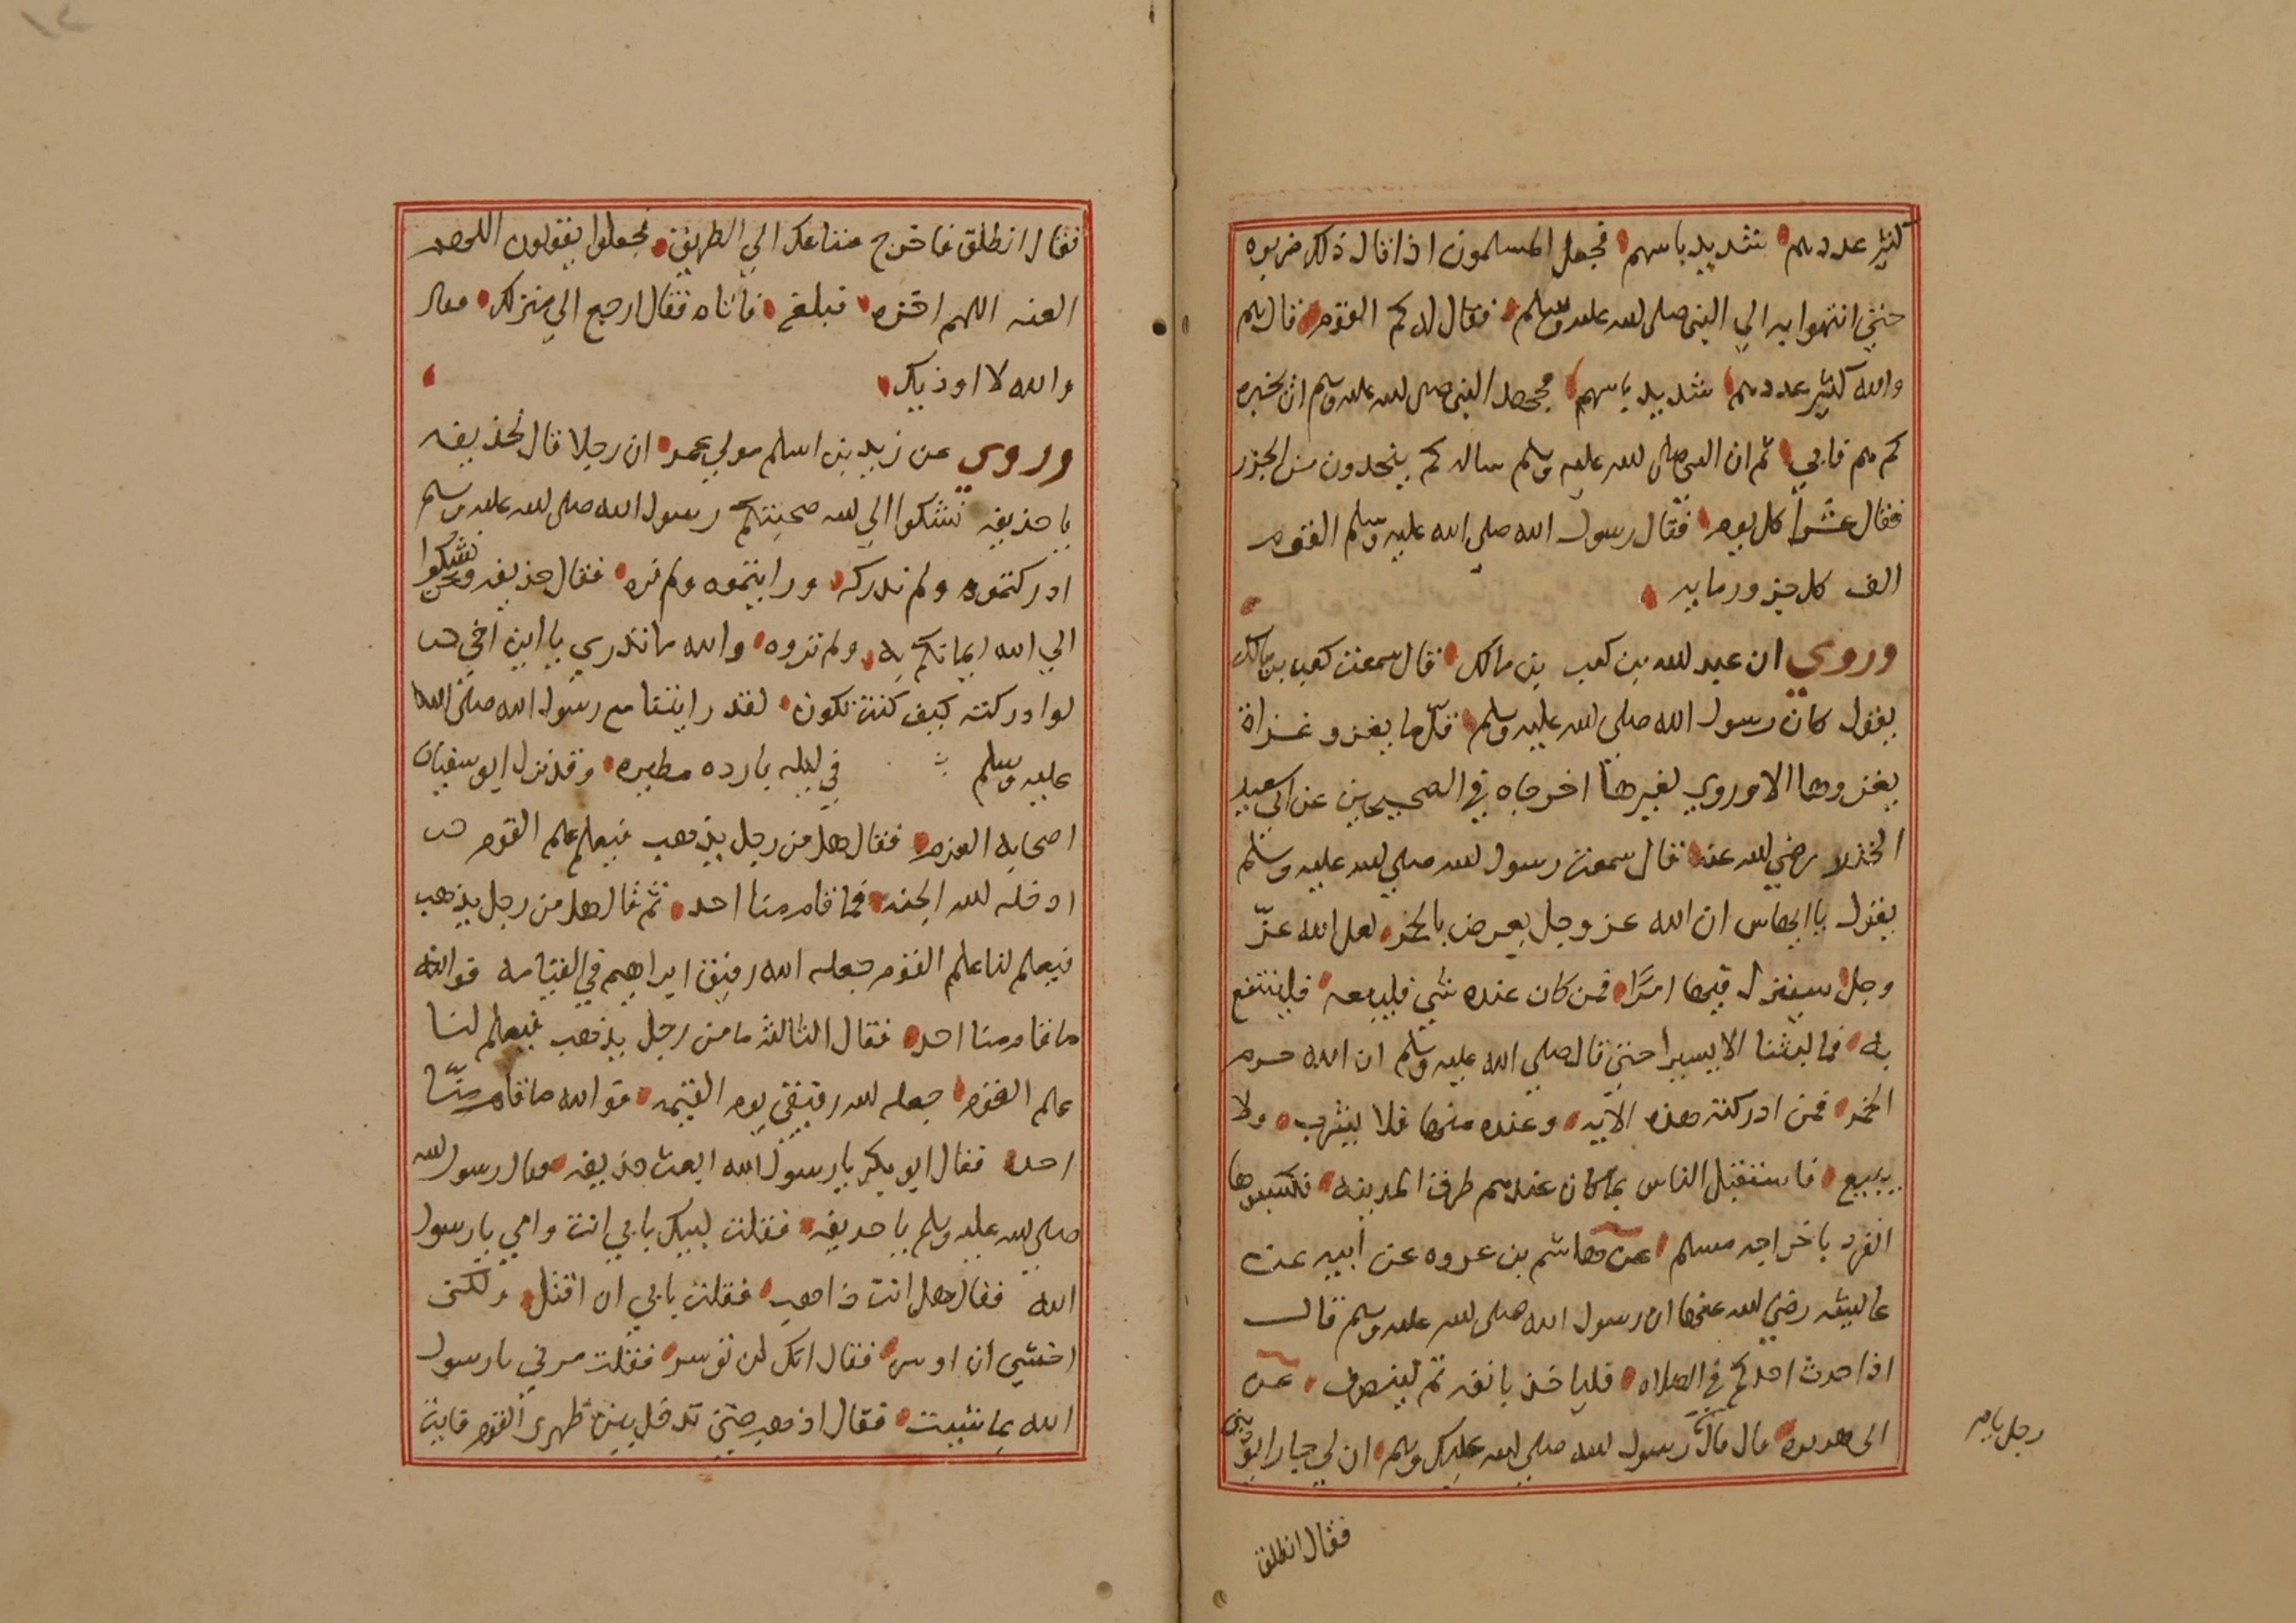 كثير عددهم شديد باسهم فجعل المسلمون اذا قال ذلك ضربوه
حتي انتهوا به الي النبي صلى الله عليه وسلم فقال له كم القوم قال هم
والله كثير عددهم شديد باسهم فجهد النبي صلى الله عليه وسلم ان يخبره
كم هم فابي ثم ان النبي صلى الله عليه وسلم ساله كم ينحرون من الجزر
فقال عشرا كل يوم فقال رسول الله صلي الله عليه وسلم القوم
الف كل جزور مايه
وروي ان عبد الله بن كعب بن مالك قال سمعت كعب بن مالك
يقول كان رسول الله صلى الله عليه وسلم قلّ ما يغزو غزاة
يغزوها الا وروي لغيرها اخرجاه في الصحيحين عن ابي سعيد
الخدري رضي الله عنه قال سمعت رسول الله صلي الله عليه وسلم
يقول يا ايها الناس ان الله عز وجل يعرض بالخمر لعل الله عزّ
وجل سينزل فيها امرًا فمن كان عنده شي فليبعه فلينتفع
به فما لبثنا الا يسيرا حتي قال صلي الله عليه وسلم ان الله حرم
الخمر فمن ادركته هذه الآيه وعنده منها فلا يشرب ولا
يبيع فاستقبل الناس بما كان عندهم طرق المدينه فسكبوها
انفرد باخراجه مسلم عن هاشم بن عروه عن أبيه عن
عاليشه رضي الله عنها ان رسول الله صلى الله عليه وسلم قال
اذا احدث احدكم في الصلاه فلياخذ بانفه ثم لينصرف عن
ابى هريره قال قال رسول الله صلي الله عليك وسلم ان لي جارا يوذيني
رجل يا
فقال انطلق
فقال انطلق فاخرج متاعك الي الطريق فجعلوا يقولون اللهم
العنه اللهم اخزه فبلغه فاتاه فقال ارجع الي منزلك فقال
والله لا اوذيك
وروي عن زيد بن اسلم مولي عمر ان رجلا قال لحذيفه
يا حذيفه نشكوا الي الله صحبتكم رسول الله صلى الله عليه وسلم
ادركتموه ولم ندركه ورايتموه ولم نره فقال حذيفه ونحن نشكوا
الي الله ايمانكم به ولم تروه والله ما تدري يا ابن اخي
لو ادركته كيف كنت تكون لقد رايتنا مع رسول الله صلى الله
عليه وسلم في ليله بارده مطيره وقد نزل ابو سفيان
اصحابه العزم فقال هل من رجل يذهب فيعلم علم القوم
ادخله الله الجنه فما قام منا احد ثم قال هل من رجل يذهب
فيعلم لنا علم القوم جعله الله رفيق ابراهيم في القيامه فوالله
ما قام منا احد فقال الثالثه ما من رجل يذهب فيعلم لنا
علم القوم جعله الله رفيقي يوم القيمه فوالله ما قام منّا
احد فقال ابو بكر يا رسول الله ابعث حذيفه فقال رسول الله
صلي الله عليه وسلم يا حذيفه فقلت لبيك بابي انت وامي يا رسول
الله فقال هل انت ذاهب فقلت يا بي ان اقتل ولكني
اخشي ان اوسر فقال انك لن توسر فقلت مرني يا رسول
الله بما شيت فقال اذهب حتي تدخل بين ظهري القوم فايت